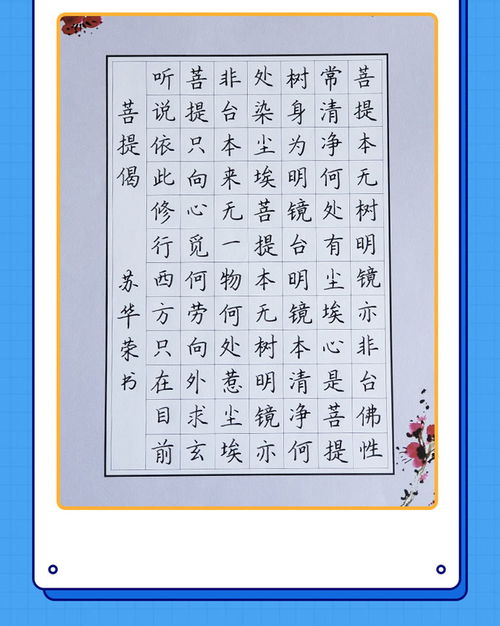 菩提本无树明镜亦非台佛性
常清净何处有尘埃心是菩提
树身为明镜台明镜本清净何
处染尘埃菩提本无树明镜亦
非台本来无一物何处惹尘埃
菩提只向心觅何劳向外求玄
听说依此修行西方只在目前
菩提偈 苏华荣书